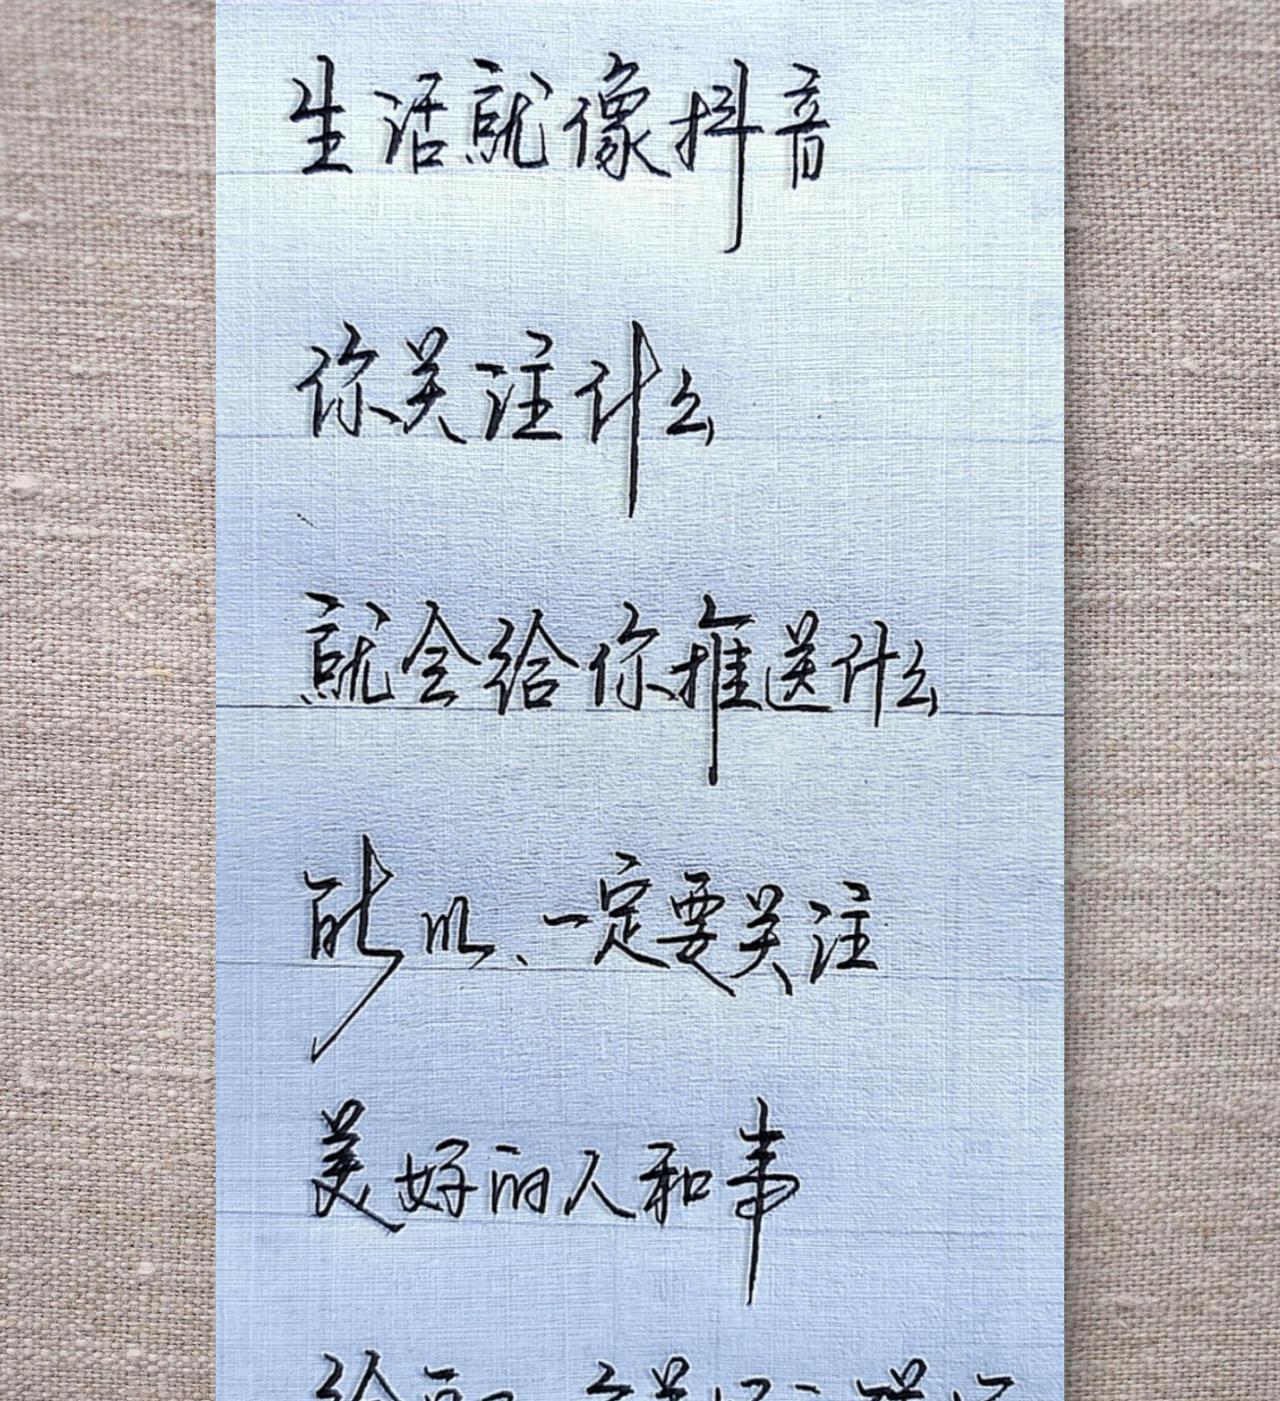 生活就像抖音
你关注什么
就会给你推送什么
所以、一定要关注
美好的人和事